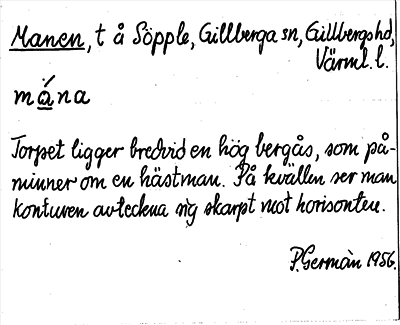 Manen, t å Söpple, Gillberga sn, Gillbergs hd,
Värml. l.
måna
Torpet ligger bredvid en hög bergås, som på-
minner om en hästman. På kvällen ser man
konturen avteckna sig skarpt mot horisonten.
P. Germàn 1956.